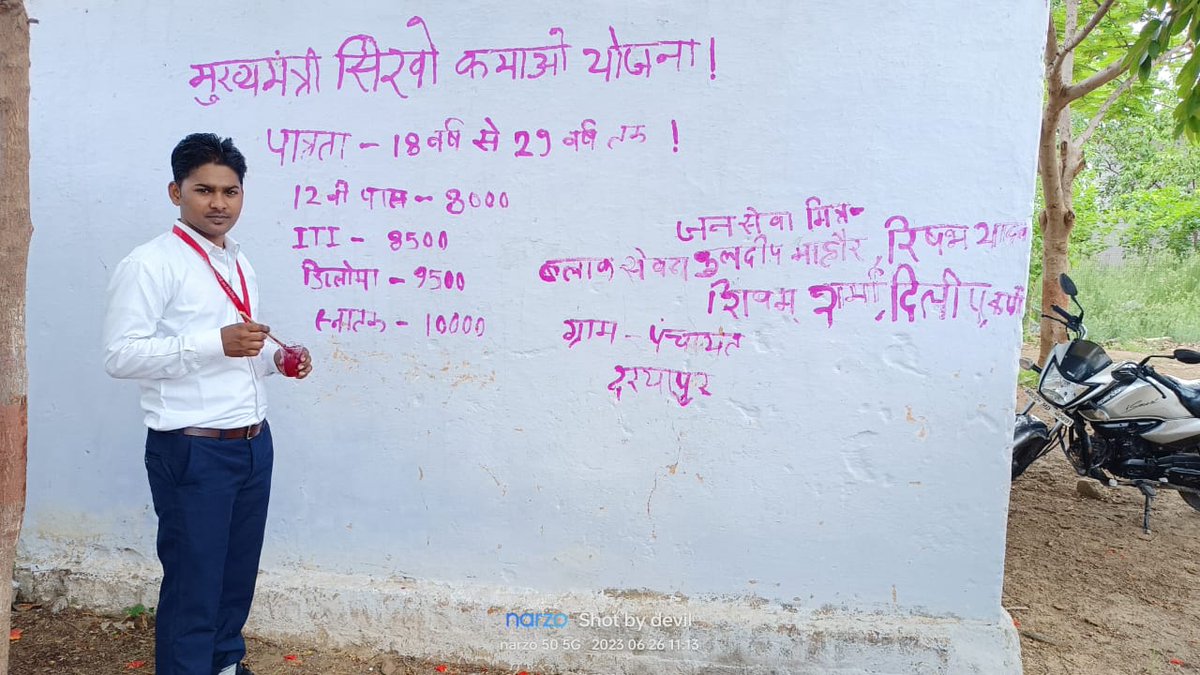 मुख्यमंत्री सिखो कमाओ योजना!
पात्रता - 18 वर्ष से 29 वर्ष तक !
12 वी पास - 8000
ITI - 8500
डिलोमा - 9500
स्नातक - 10000
जन सेवा मित्र -
ब्लाक सेवढा कुलदीप माहौर, रिषभ यादव
शिवम् शर्मा, दिलीप,
ग्राम - पंचायत
दरयापुर
narzo Shot by devil
narzo 50 5G 2023 06 26 11:13